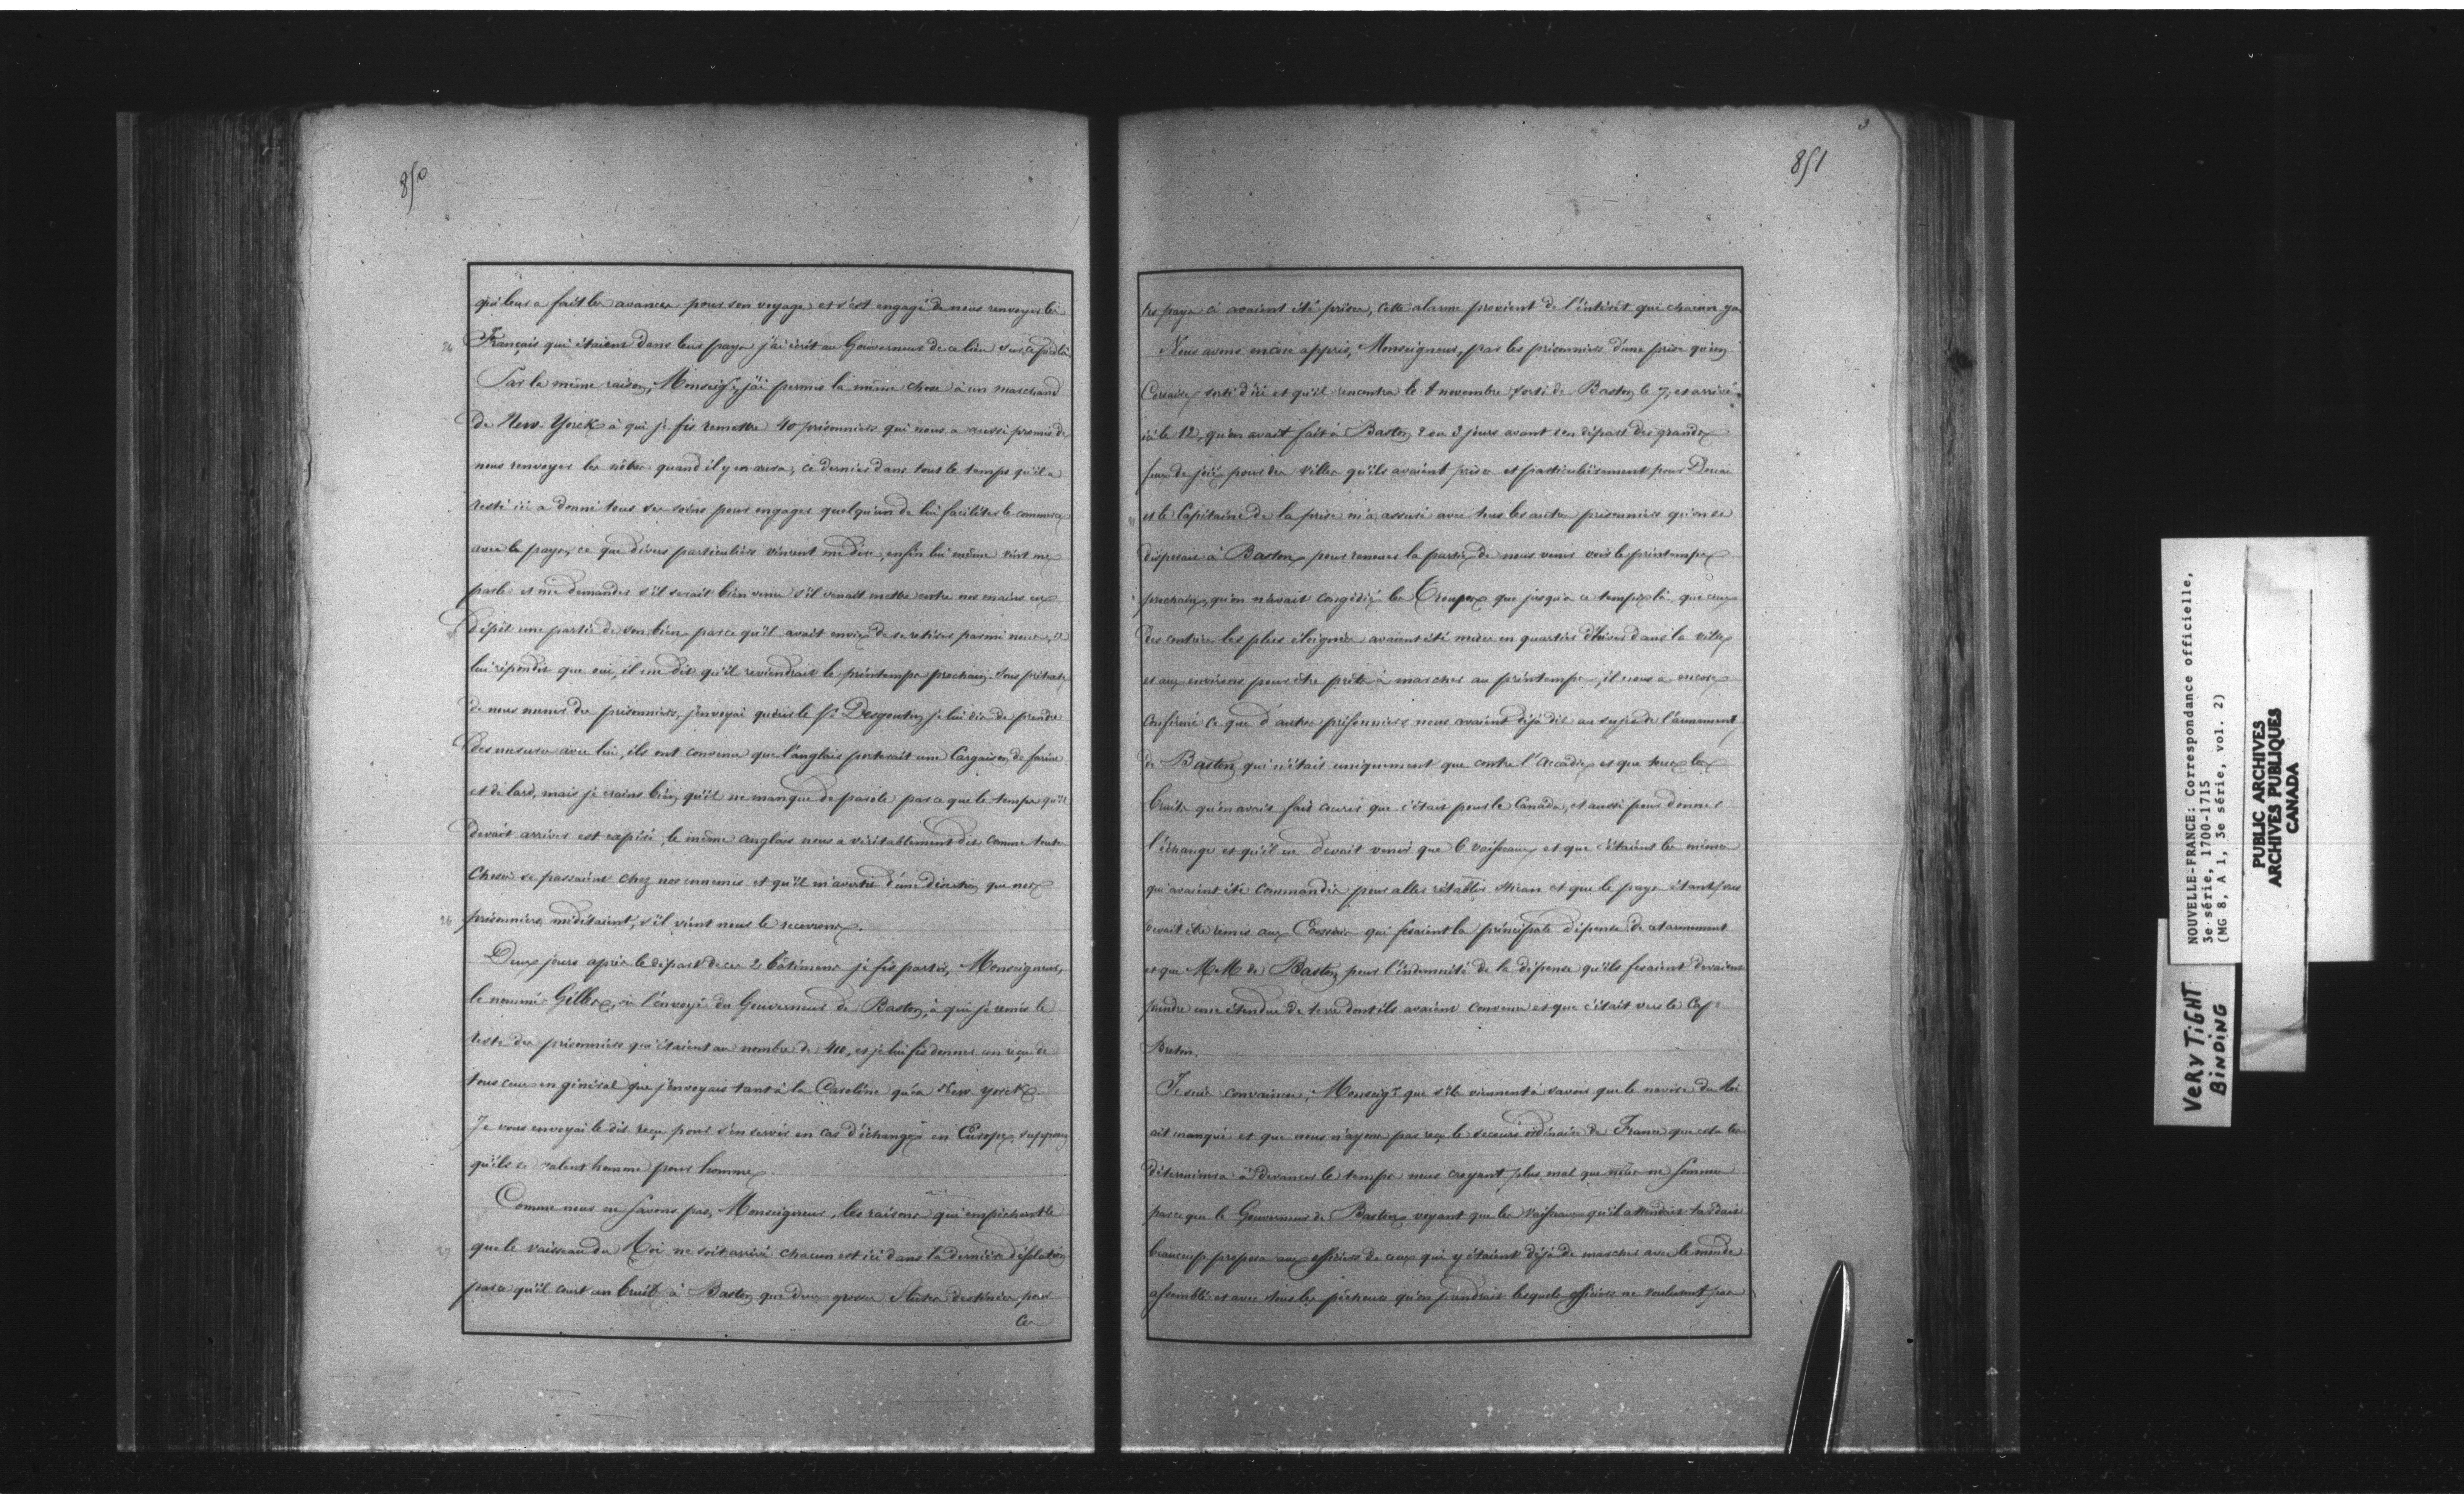 850
qui leur a fait les avances pour son voyage et s'est engagé de nous renvoyer les
24 Français qui étaient dans leurs pays j'ai écrit au Gouverneur de ce lieu sur ce pied là
Par la même raison, Monseigr, j'ai permis la même chose à un marchand
de New-Yorck à qui je fis remettre 40 prisonniers qui nous a aussi promis de
nous renvoyer les nôtres quand il y en aura, ce dernier dans tout le temps qu'il a
resté ici a donné tous ses soins pour engager quelqu'un de lui faciliter le commerce
avec le pays, ce que divers particuliers vinrent me dire, enfin lui même vint me
parler et me demander s'il serait bien venu s'il venait mettre entre nos mains en
dépôt une partie de son bien parce qu'il avait envie de se retirer parmi nous, je
lui répondis que oui, il me dit qu'il reviendrait le printemps prochain. Sous prétexte
de nous ramener des prisonniers, j'envoyai quérir le Sr Desgouttins je lui dis de prendre
des mesures avec lui, ils ont convenu que l'anglais porterait une Cargaison de farine
et de lard, mais je crains bien qu'il ne manque de parole parce que le temps qu'il
devait arriver est expiré, le même anglais nous a véritablement dit comme toutes
choses se passaient chez nos ennemis et qu'il m'avertit d'une désertion que nos
26 prisonniers méditaient, s'il vient nous le recevrons.
Deux jours après le départ de ces 2 bâtiments je fis partir, Monseigneur,
le nommé Gilles, ici l'envoyé du Gouverneur de Baston, à qui je remis le
reste des prisonniers qui étaient au nombre de 410, et je lui fis donner un reçu de
tous ceux en général que j'envoyais tant à la Caroline qu'à New yorck
Je vous envoyai le dit reçu pour s'en servir en cas d'échange en Europe, supposez
qu'ils se valent homme pour homme.
Comme nous ne savons pas, Monseigneur, les raisons qui empêchent
27 que le vaisseau du Roi ne soit arrivé chacun est ici dans la dernière désolation
parce qu'il court un bruit à Baston que deux grosses flutes destinées pour
Ces
851
ces pays ci avaient été prises, cette alarme provient de l'intérêt que chacun y a
Nous avons encore appris, Monseigneur, par les prisonniers d'une prise qu'un
Corsaire sorti d'ici et qu'il rencontra le 8 novembre sorti de Baston le 7, et arrivé
ici le 12, qu'on avait fait à Baston 2 ou 3 jours avant son départ des grands
feux de joie pour des villes qu'ils avaient prises et particulièrement pour Douai
et le Capitaine de la prise m'a assuré avec tous les autres prisonniers qu'on se
disposait à Baston pour renouer la partie de nous venir voir le printemps
prochain, qu'on n'avait congédié les Troupes que jusqu'à ce temps là, que ceux
des contrées les plus éloignées avaient été mises en quartier d'hiver dans la ville
et aux environs pour être prêts à marcher au printemps, il nous a encore
confirmé ce que d'autres prisonniers nous avaient déjà dit au sujet de l'armement
de Baston qui n'était uniquement que contre l'Accadie et que tous les
bruits qu'on avait fait courir que c'était pour le Canada, et aussi pour donner
l'échange et qu'il ne devait venir que 6 vaisseaux et que c'étaient les mêmes
qui avaient été commandés pour aller rétablir et que le pays étant pris
devait être remis aux Ecossais qui fesaient la principale dépense de cet armement
et que MM de Baston pour l'indemnité de la dépense qu'ils fesaient devaient
prendre une étendue de terre dont ils avaient convenu et que c'était vers le Cap
Breton.
Je suis convaincu, Monseigr que s'ils viennent à savoir que le navire du Roi
ait manqué et que nous n'ayons pas reçu le secours ordinaire de France que cela les
déterminera à devancer le temps nous croyant plus mal que nous ne sommes
parce que le Gouverneur de Baston voyant que les vaisseaux qu'il attendait tardait
beaucoup proposa aux officiers de ceux qui y étaient déjà de marcher avec le monde
assemblé et avec tous les pêcheurs qu'on prendrait lesquels officiers ne voulurent pas
NOUVELLE-FRANCE: Correspondance officielle,
3e série, 1700-1715
(MG 8, A 1, 3e série, vol. 2)
PUBLIC ARCHIVES
ARCHIVES PUBLIQUES
CANADA
VeRY TiGHT
BiNDiNG